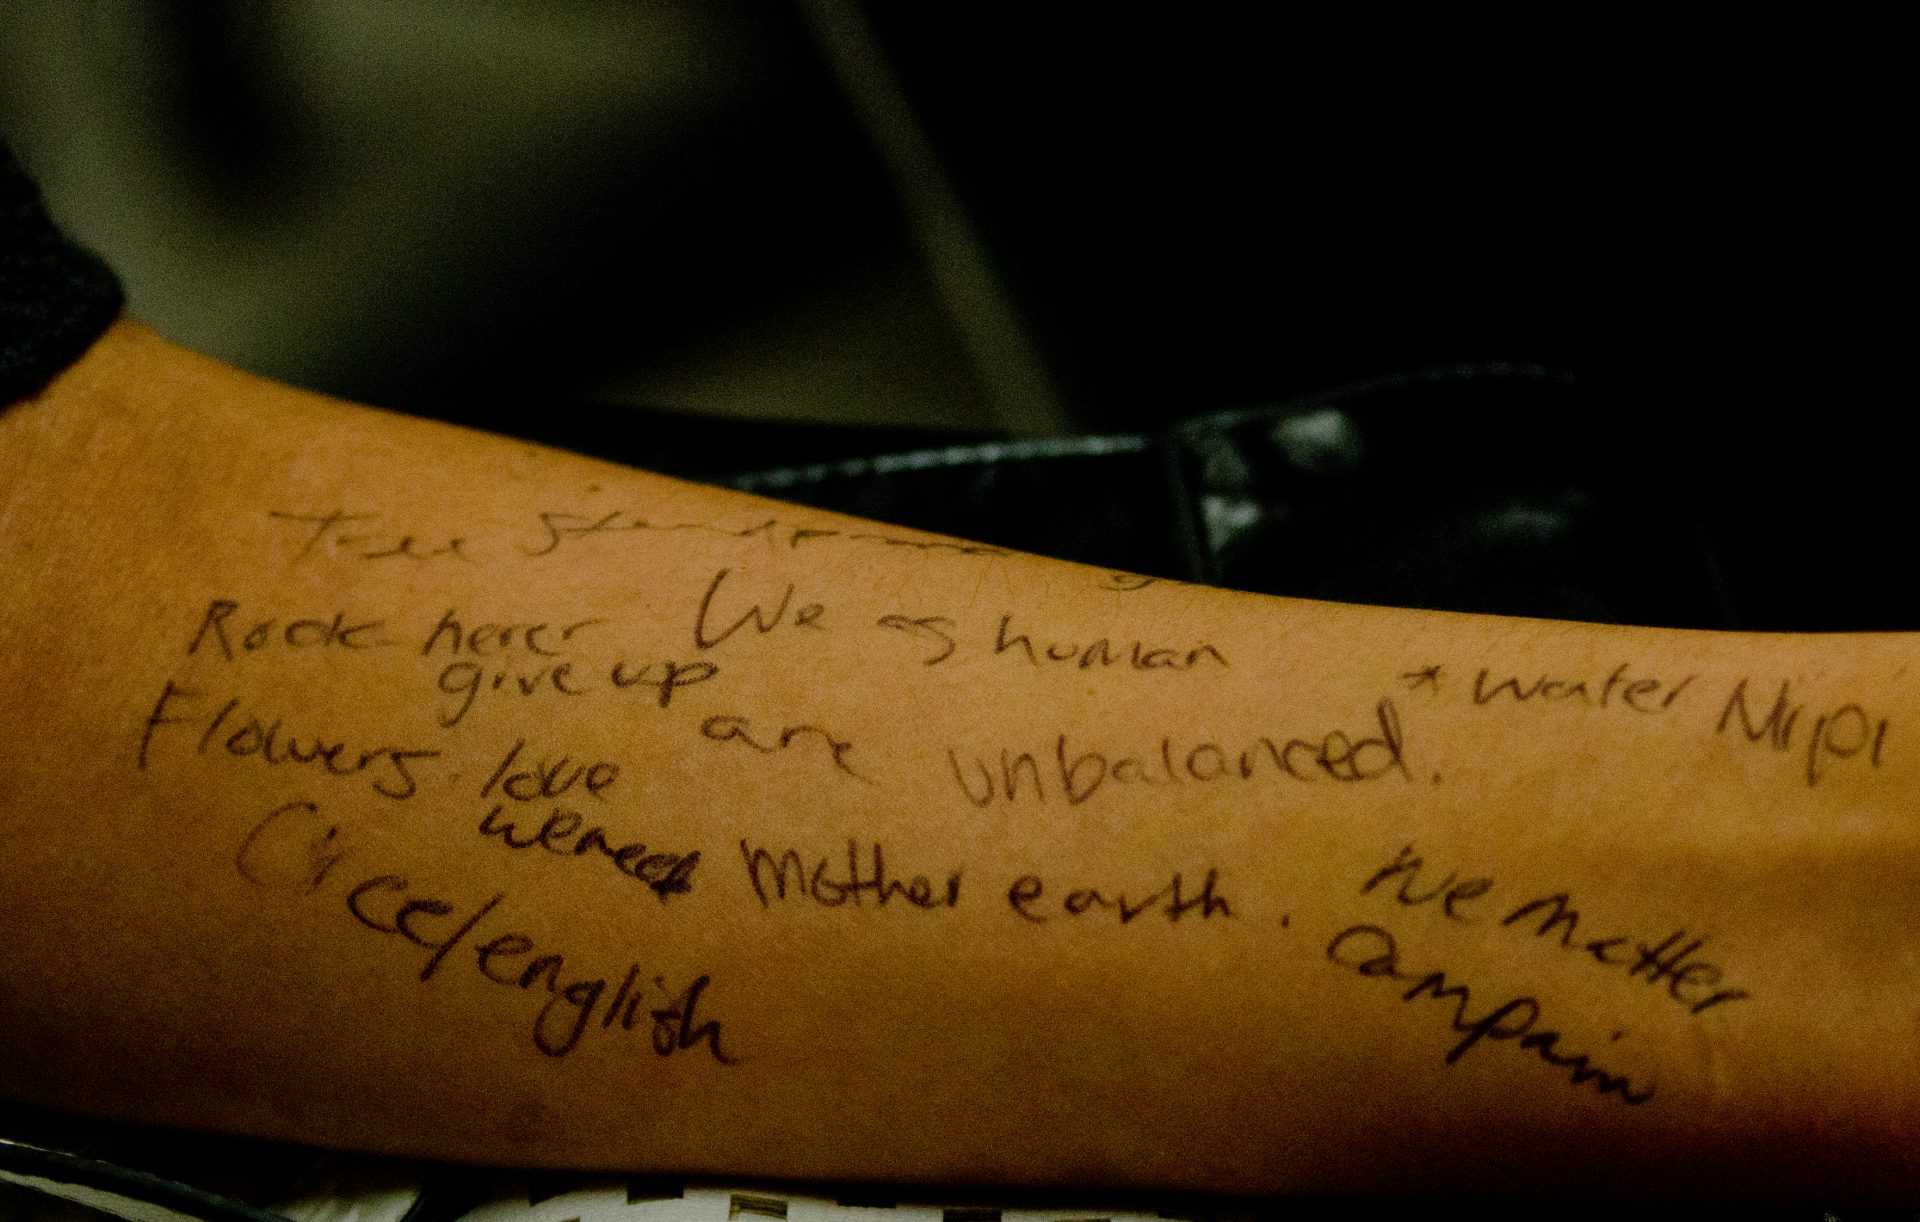 Tree
Rock never We as human
give up
Flowers love are unbalanced. * water Nipi
we need Mother earth. We Matter
Cree/english Campain